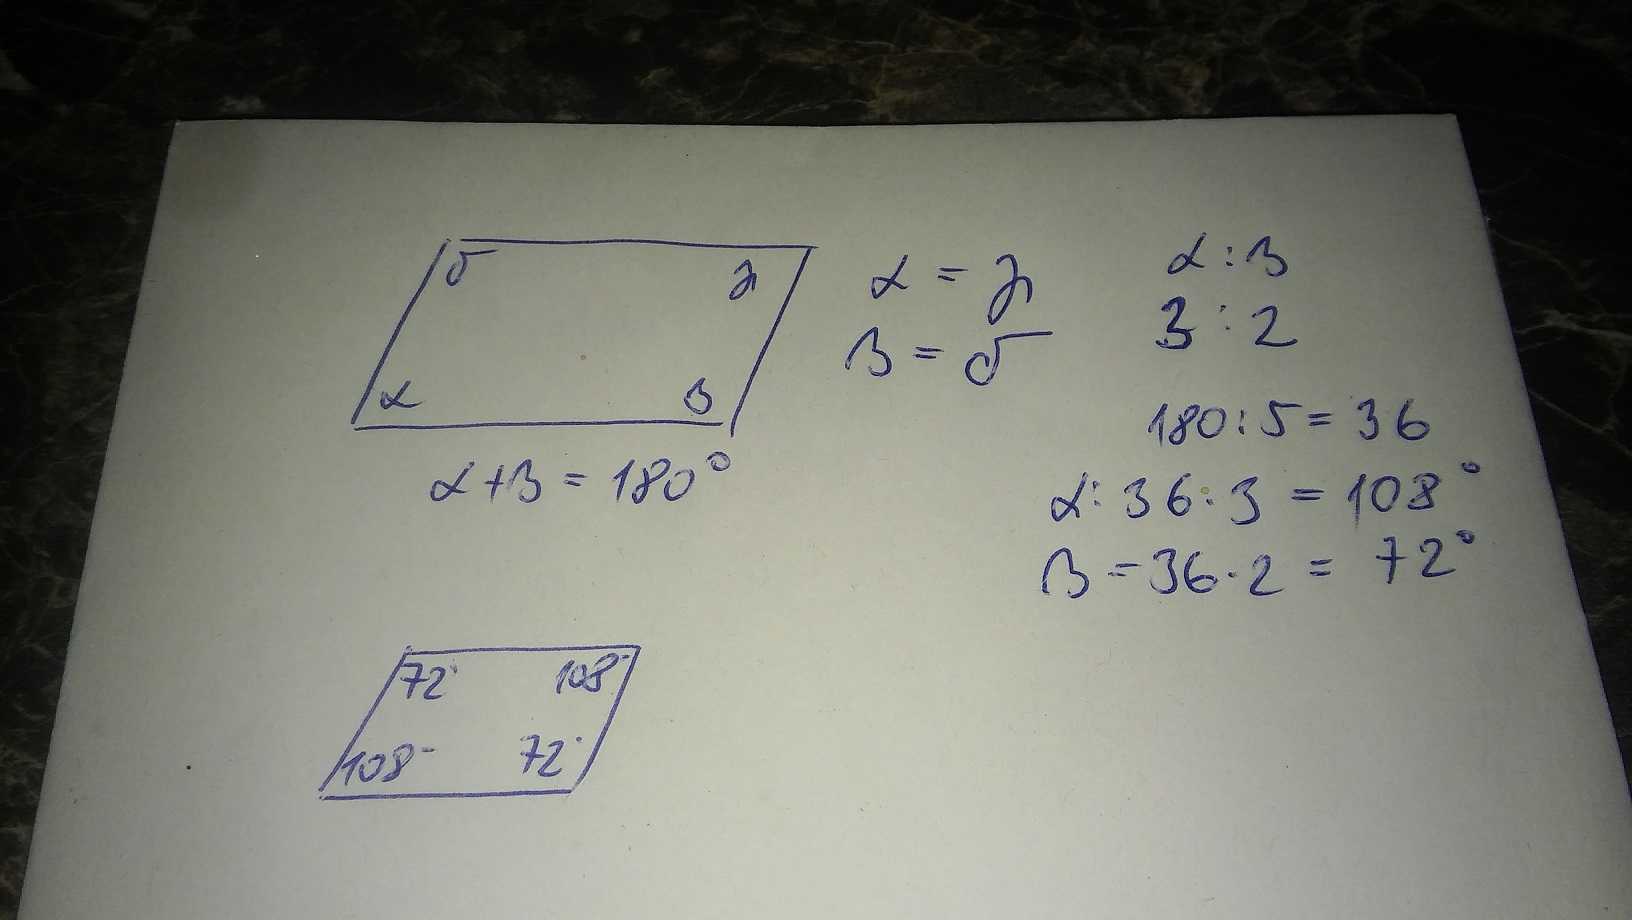 δ γ
α β
α + β = 180°
α = γ
β = δ
α : β
3 : 2
180 : 5 = 36
α : 36 · 3 = 108°
β = 36 · 2 = 72°
72° 108°
108° 72°